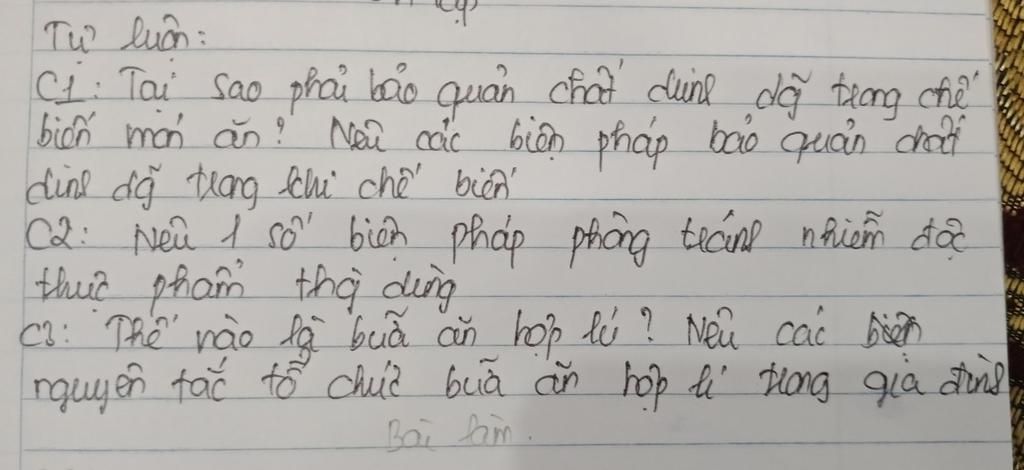 Tự luận:
C1: Tại sao phải bảo quản chất dinh dưỡng trong chế
biến món ăn? Nêu các biện pháp bảo quản chất
dinh dưỡng trong khi chế biến
C2: Nêu 1 số biện pháp phòng tránh nhiễm độc
thực phẩm thường dùng
C3: Thế nào là bữa ăn hợp lí? Nêu các
nguyên tắc tổ chức bữa ăn hợp lí trong gia đình
Bài làm.